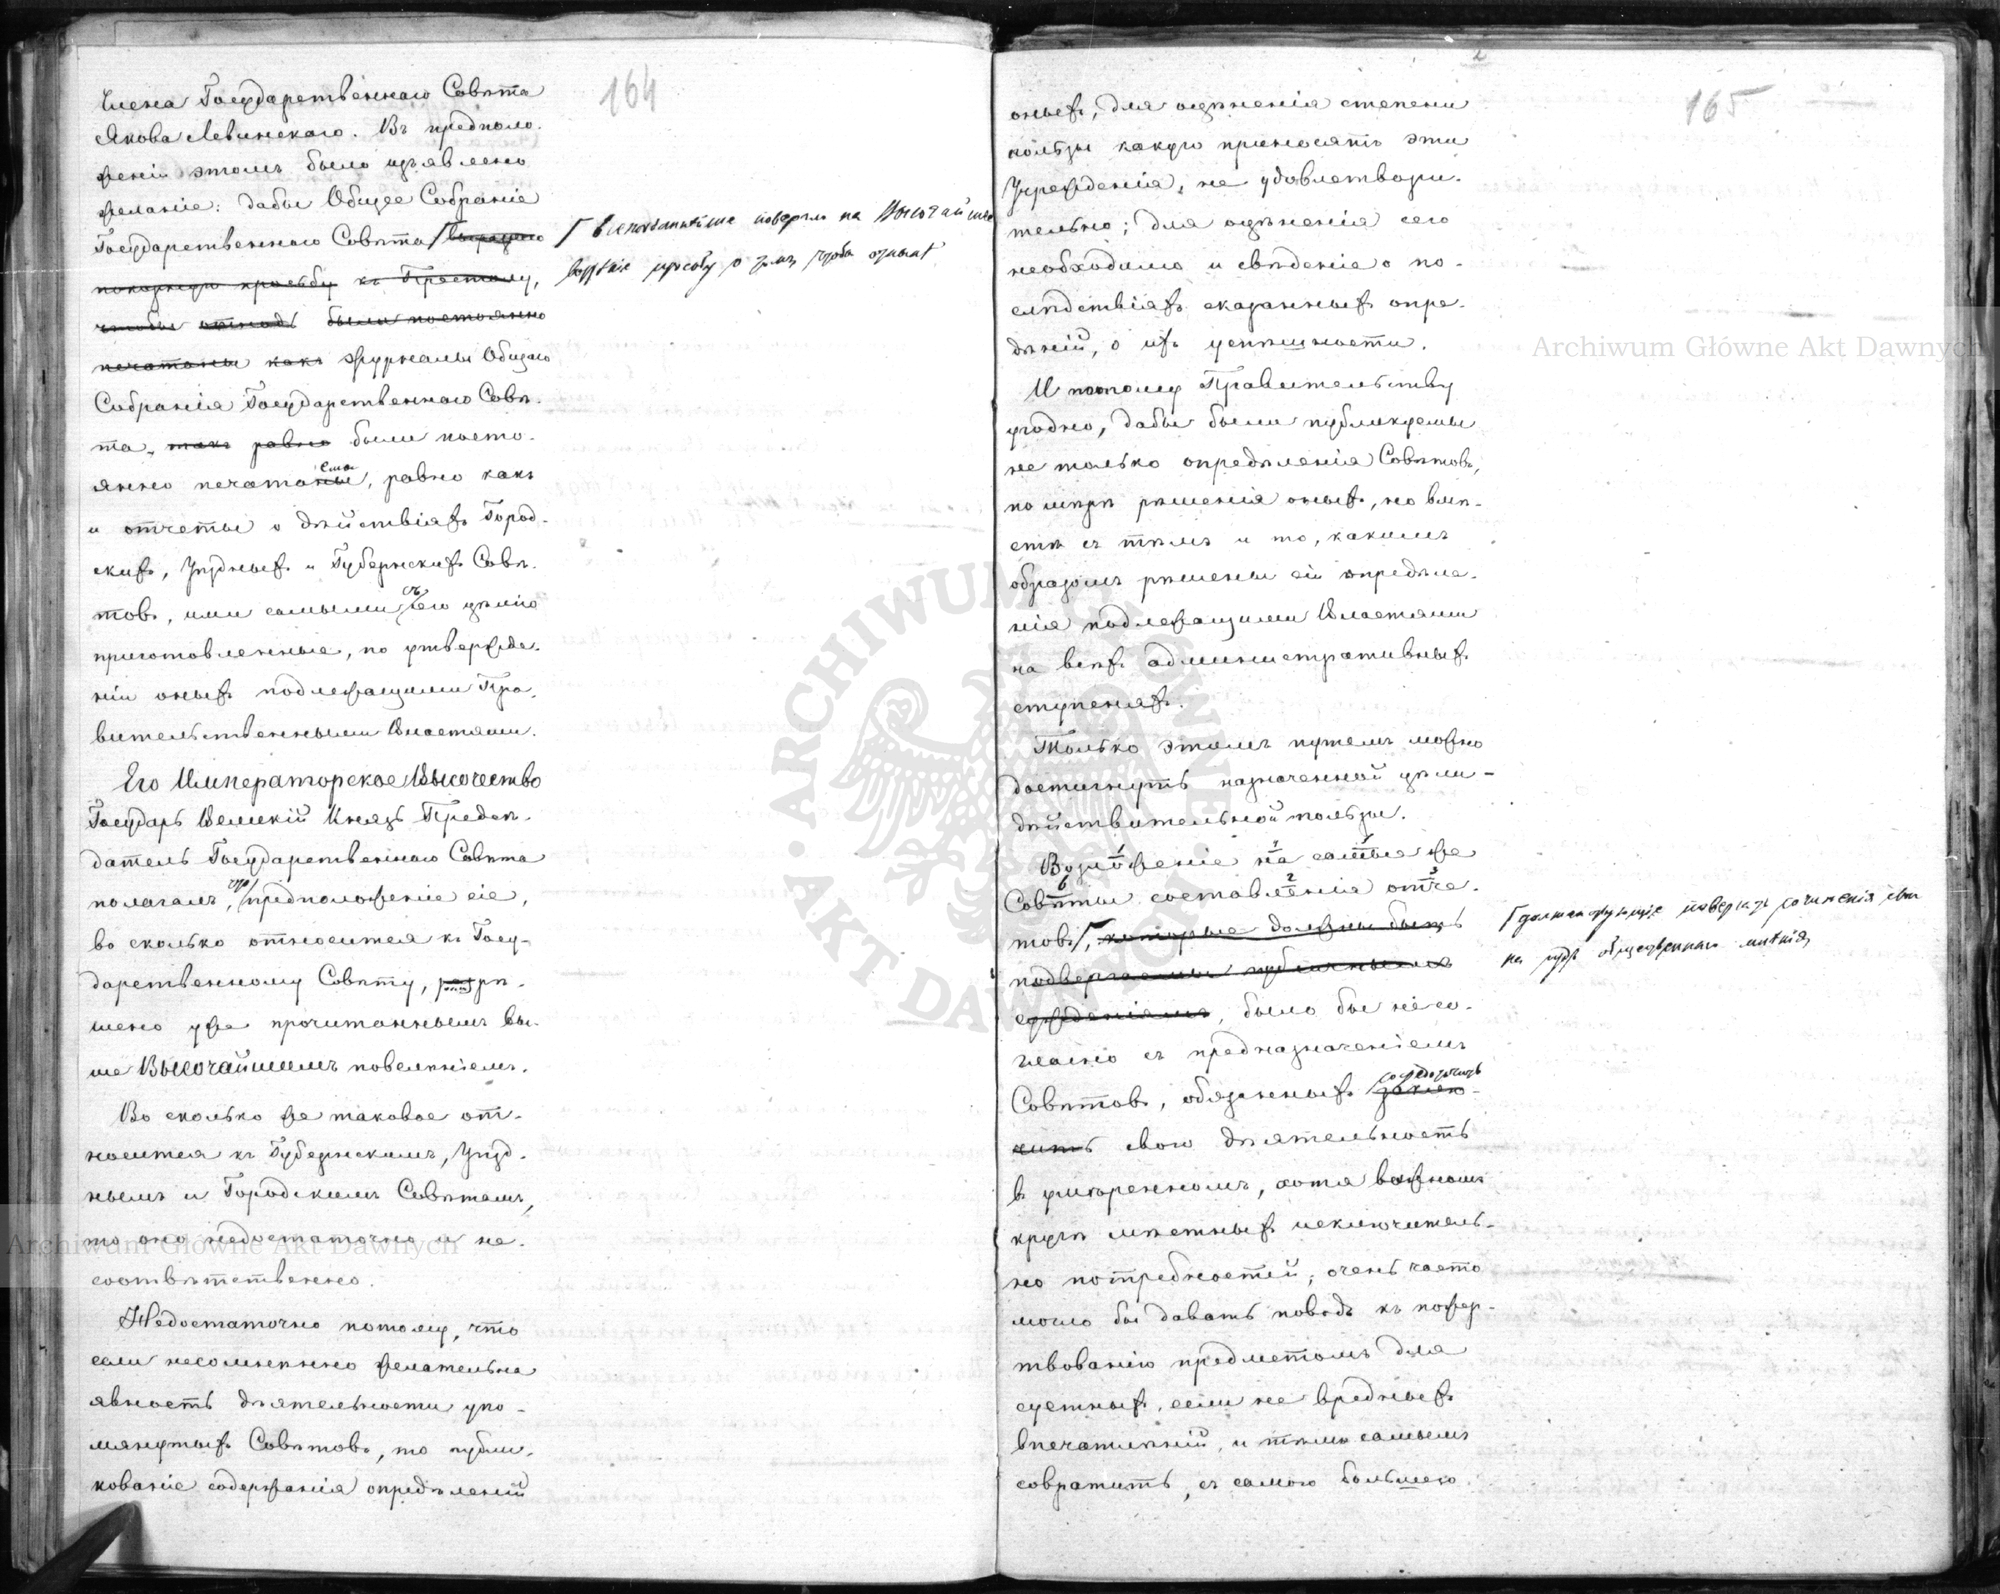 164
Члена Государственнаго Совѣта
Якова Левинскаго. Въ предполо-
женіи этомъ было изъявлено
желаніе: дабы Общее Собраніе
Государственнаго Совѣта выразило
покорную просьбу къ Престолу,
чтобы отнынѣ были постоянно
печатаны какъ журналы Общаго
Собранія Государственнаго Совѣ-
та, такъ равно были посто-
янно печатаны, равно какъ
и отчеты о дѣйствіяхъ Город-
скихъ, Уѣздныхъ и Губернскихъ Совѣ-
товъ, ими самыми съ сею цѣлію
приготовленные, по утвержде-
ніи оныхъ подлежащими Пра-
вительственными Властями.
Его Императорское Высочество
Государь Великій Князь Предсѣ-
датель Государственнаго Совѣта
полагалъ, что предположеніе сіе,
во сколько относится къ Госу-
дарственному Совѣту, разрѣ-
шено уже прочитаннымъ вы-
ше Высочайшимъ повелѣніемъ.
Во сколько же таковое от-
носится къ Губернскимъ, Уѣзд-
нымъ и Городскимъ Совѣтамъ,
то оно недостаточно и не-
соотвѣтственно.
Недостаточно потому, что
если несомнѣнно желательна
явность дѣятельности упо-
мянутыхъ Совѣтовъ, то публи-
кованіе содержанія опредѣленій
всеподданнѣйше повергло на Высочайшее
воззрѣніе просьбу о томъ, чтобы отнынѣ
2
165
оныхъ, для оцѣненія степени
пользы какую приносятъ эти
Учрежденія, не удовлетвори-
тельно; для оцѣненія сего
необходимо и свѣдѣніе о по-
слѣдствіяхъ сказанныхъ опре-
дѣленій, о ихъ успѣшности.
И потому Правительству
угодно, дабы были публикуемы
не только опредѣленія Совѣтовъ,
по мѣрѣ рѣшенія оныхъ, но вмѣ-
стѣ съ тѣмъ и то, какимъ
образомъ рѣшены сіи опредѣле-
нія подлежащими Властями
на всѣхъ административныхъ
ступеняхъ.
Только этимъ путемъ можно
достигнуть назначенной цѣли –
дѣйствительной пользы.
Возложеніе на самые же
Совѣты составленія отче-
товъ, которые должны быть
подвергаемы публичнымъ
сужденіямъ, было бы несо-
гласно съ предназначеніемъ
Совѣтовъ, обязанныхъ заклю-
чить свою дѣятельность
въ умѣренномъ, хотя важномъ
кругѣ мѣстныхъ исключитель-
но потребностей; очень часто
могло бы давать поводъ къ пожер-
твованію предметомъ для
суетныхъ, если не вредныхъ
впечатлѣній, и тѣмъ самымъ
совратить, съ самою большею
сосредоточить
на судъ общественнаго мнѣнія,
Archiwum Główne Akt Dawnych
Archiwum Główne Akt Dawnych
ARCHIWUM GŁÓWNE AKT DAWNYCH